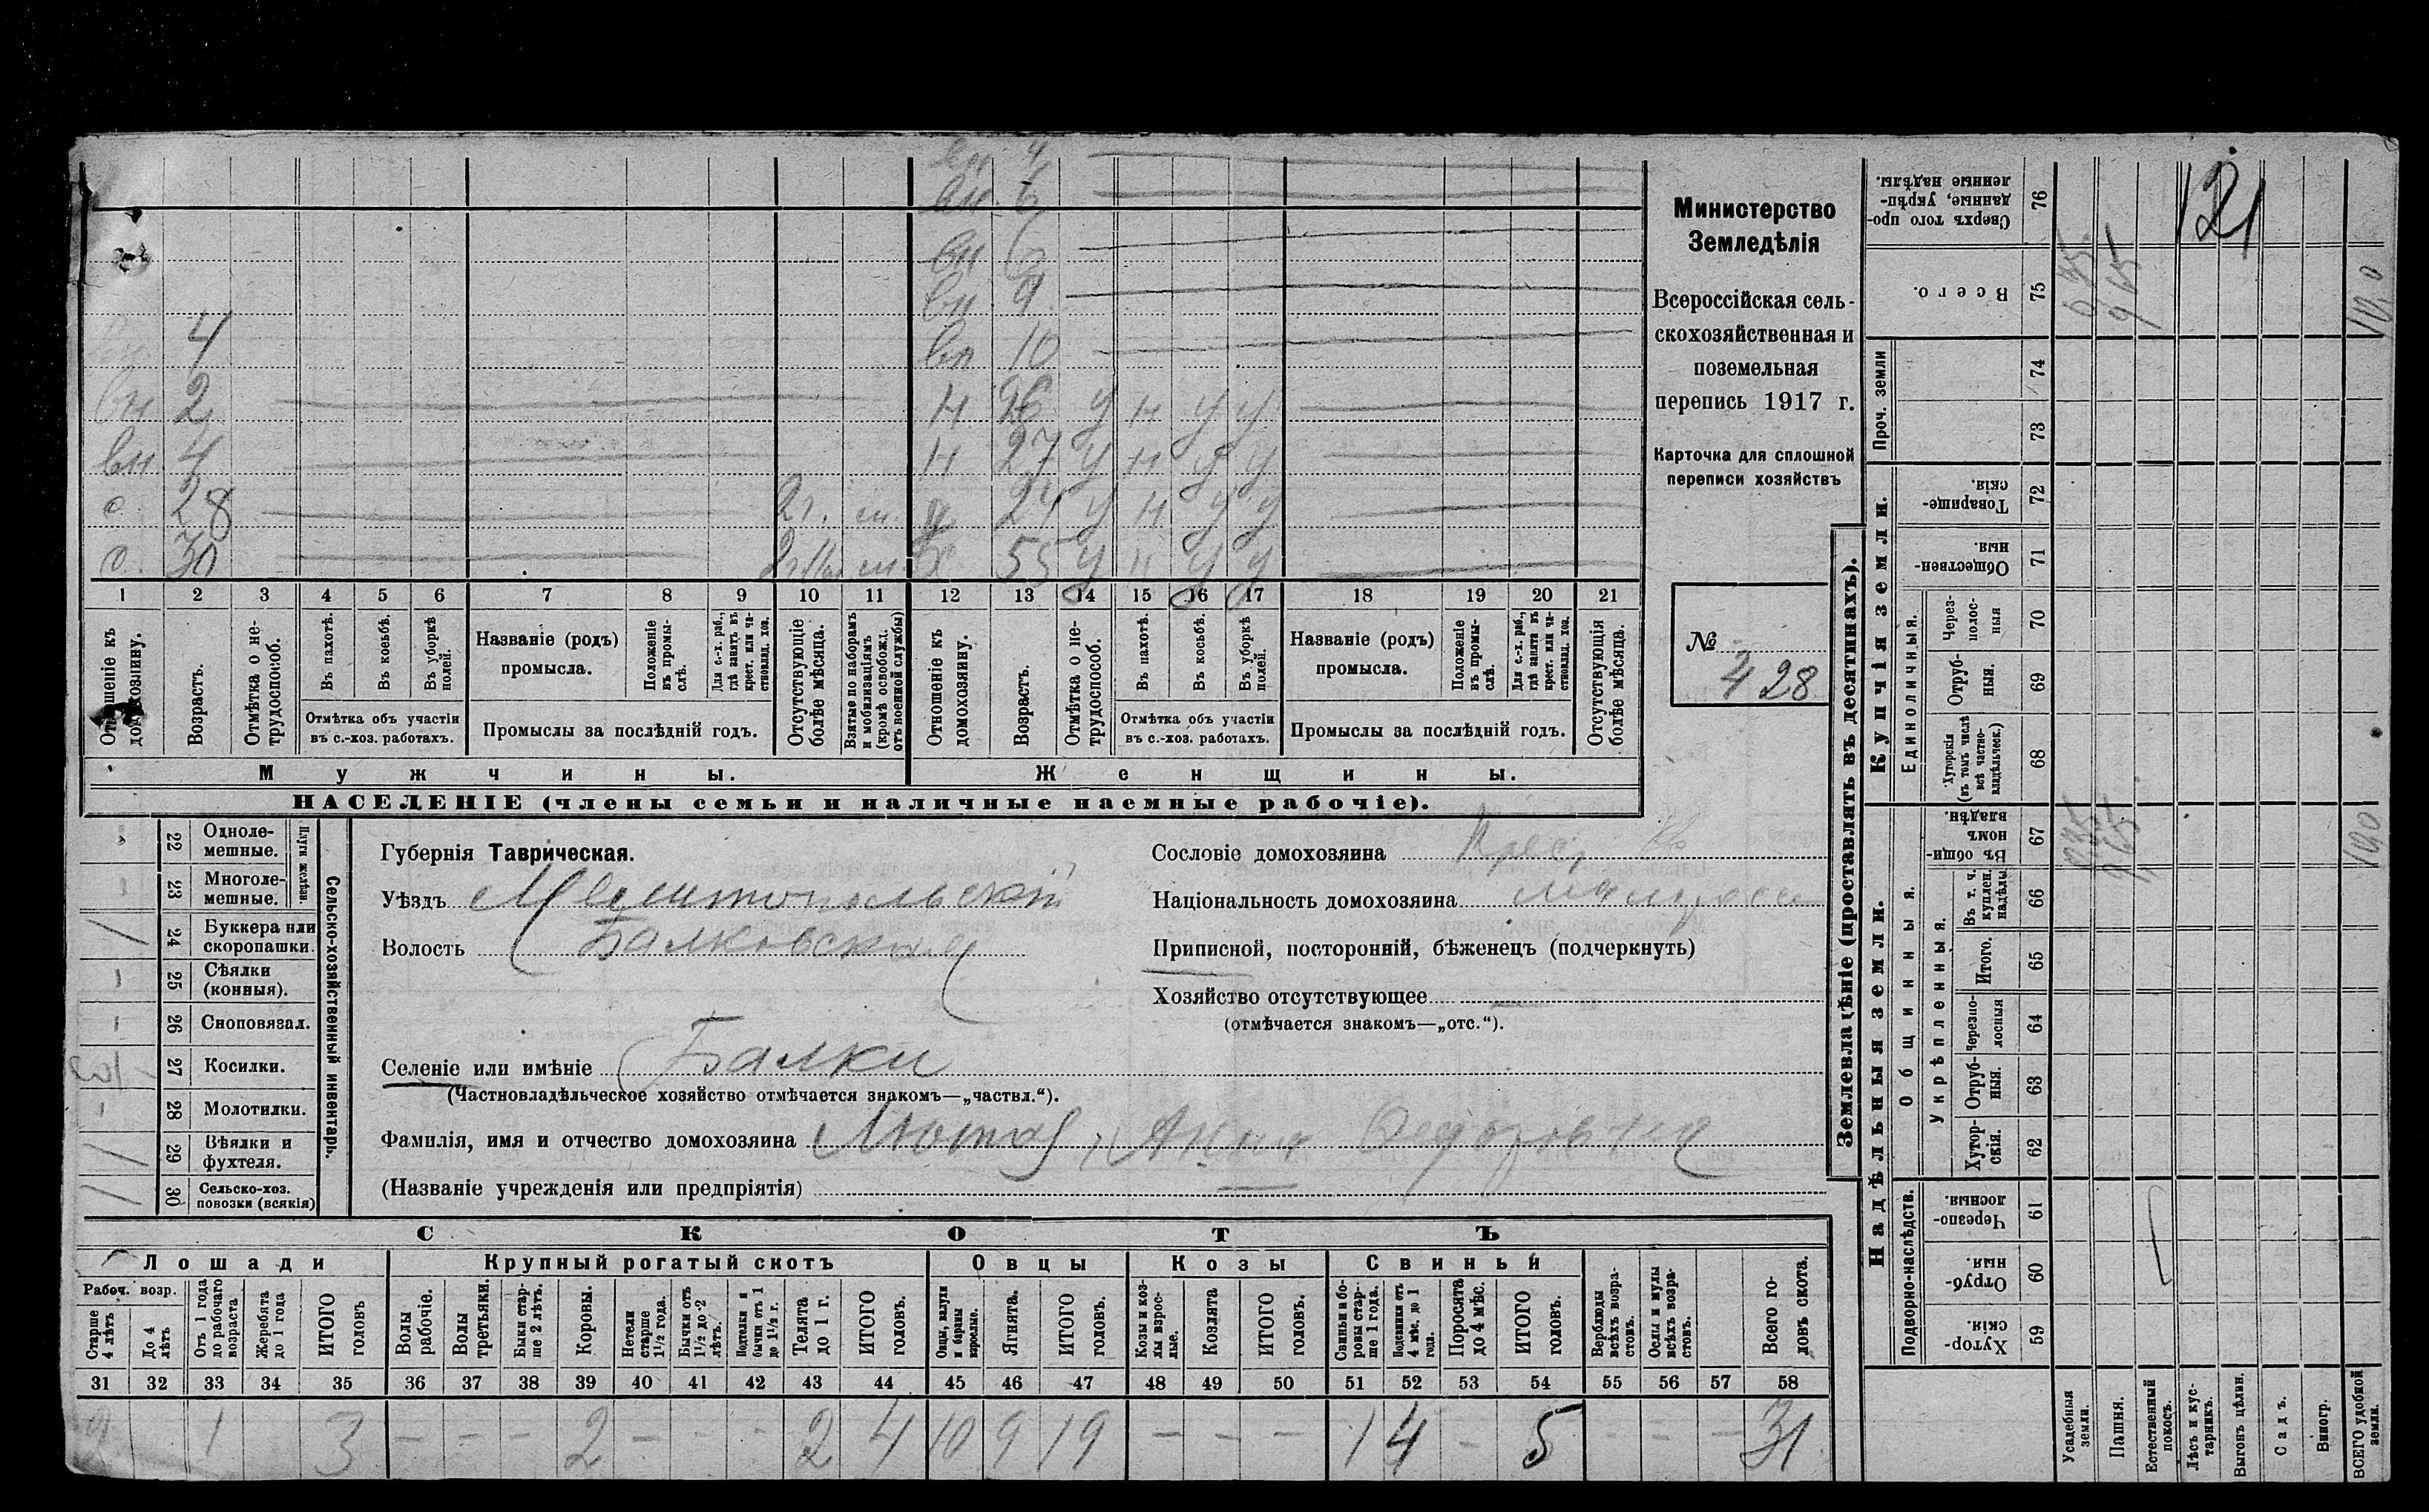 вн 4
вн 6
вн 6
вн 9
4 вн 10
вн 2 Н 26 у н у у
вн 4 Н 27 у н у у
с 28 2 г. м. 24 у н у у
с 30 м 55 у н у у
1 2 3 4 5 6 7 8 9 10 11 12 13 14 15 16 17 18 19 20 21
Отношеніе къ домохозяину.
Возрастъ.
Отмѣтка о не-
трудоспособ.
Въ пахотѣ.
Въ косьбѣ.
Въ уборкѣ
полей.
Отмѣтка объ участіи
въ с.-хоз. работахъ.
Названіе (родъ)
промысла.
Положеніе
въ промы-
слѣ.
Для с.-х. раб.,
гдѣ занятъ въ
крест. или ча-
стновлад. хоз.
Промыслы за послѣдній годъ.
Отсутствующіе
болѣе мѣсяца.
Взятые по наборамъ
и мобилизаціямъ
(кромѣ освобожд.
отъ военной службы)
Отношеніе къ
домохозяину.
Возрастъ.
Отмѣтка о не-
трудоспособ.
Въ пахотѣ.
Въ косьбѣ.
Въ уборкѣ
полей.
Отмѣтка объ участіи
въ с.-хоз. работахъ.
Названіе (родъ)
промысла.
Положеніе
въ промы-
слѣ.
Для с.-х. раб.,
гдѣ занята въ
крест. или ча-
стновлад. хоз.
Промыслы за послѣдній годъ.
Отсутствующія
болѣе мѣсяца.
Мужчины.
Женщины.
НАСЕЛЕНІЕ (члены семьи и наличные наемные рабочіе).
Министерство
Земледѣлія
Всероссійская сель-
скохозяйственная и
поземельная
перепись 1917 г.
Карточка для сплошной
переписи хозяйствъ
№
428
Плуги желѣзн.
22 Одноле-
мешные.
23 Многоле-
мешные.
24 Буккера или
скоропашки.
25 Сѣялки
(конныя).
26 Сноповязал.
27 Косилки.
28 Молотилки.
29 Вѣялки и
фухтеля.
30 Сельско-хоз.
повозки (всякія)
Сельско-хозяйственный инвентарь.
Губернія Таврическая.
Уѣздъ Мелитопольскій
Волость Балковская
Селеніе или имѣніе Балки
(Частновладѣльческое хозяйство отмѣчается знакомъ—„частвл.“).
Фамилія, имя и отчество домохозяина Лютая, Анна Федоровна
(Названіе учрежденія или предпріятія)
Сословіе домохозяина Крес.
Національность домохозяина малорос
Приписной, посторонній, бѣженецъ (подчеркнуть)
Хозяйство отсутствующее
(отмѣчается знакомъ—„отс.“).
СКОТЪ
Лошади Крупный рогатый скотъ Овцы Козы Свиньи
Рабоч. возр.
Старше
4 лѣтъ
До 4
лѣтъ
Отъ 1 года
до рабочаго
возраста
Жеребята
до 1 года
ИТОГО
головъ
Волы
рабочіе.
Волы
третьяки.
Быки стар-
ше 2 лѣтъ.
Коровы.
Нетели
старше
1½ года.
Бычки отъ
1½ до 2
лѣтъ.
Подтелки и
бычки отъ 1
до 1½ г.
Телята
до 1 г.
ИТОГО
головъ.
Овцы, валухи
и бараны
взрослые.
Ягнята.
ИТОГО
головъ.
Козы и коз-
лы взрос-
лые.
Козлята
ИТОГО
головъ.
Свиньи и бо-
ровы стар-
ше 1 года.
Подсвинки отъ
4 мѣс. до 1
года.
Поросята
до 4 мѣс.
ИТОГО
головъ.
Верблюды
всѣхъ возра-
стовъ.
Ослы и мулы
всѣхъ возра-
стовъ.
Всего го-
ловъ скота.
31 32 33 34 35 36 37 38 39 40 41 42 43 44 45 46 47 48 49 50 51 52 53 54 55 56 57 58
2 1 3 — — — 2 — - - 2 4 10 9 19 — — — 1 4 — 5 - - — 31
Землевладѣніе (проставлять въ десятинахъ).
Надѣльныя земли.
Купчія земли.
Проч. земли
Подворно-наслѣдств.
Общинныя.
Укрѣпленныя.
Единоличныя.
Сверхъ того про-
данные, укрѣп-
ленные надѣлы.
76
Всего.
75
74
73
Товарище-
скія.
72
Обществен-
ныя.
71
Через-
полос-
ныя
70
Отруб-
ныя.
69
Хуторскія
(въ томъ числѣ
всѣ частно-
владѣльческ.)
68
Въ общи-
номъ
владѣн.
67
Въ т. ч.
куплен.
надѣлы
66
Итого.
65
Черезпо-
лосныя
64
Отруб-
ныя.
63
Хутор-
скія.
62
Черезпо-
лосныя
61
Отруб-
ныя
60
Хутор-
скія
59
Усадебныя
земли.
Пашня.
Естественный
покосъ.
Лѣсъ и кус-
тарникъ.
Выгонъ цѣлин.
Садъ.
Виногр.
ВСЕГО удобной
земли.
121